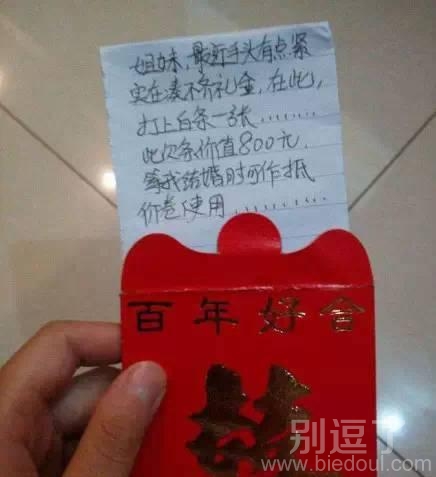 姐妹，最近手头有点紧
实在凑不齐礼金，在此，
打上白条一张........
此欠条价值800元.
等我结婚时可作抵
价卷使用............
百年好合
囍
别逗了
www.biedoul.com